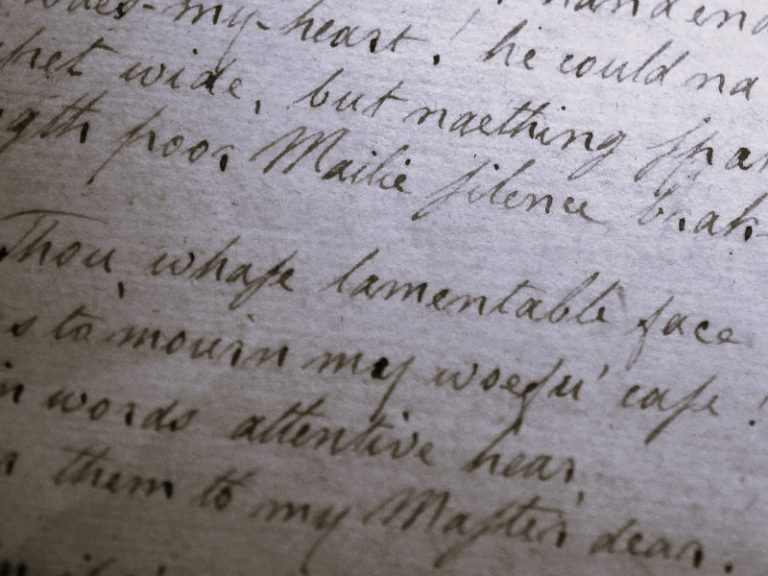 -my-heart! he could na
wide, but naething ſpa
poor Mailie ſilence brak
Thou, whaſe lamentable face
s to mourn my woefu' caſe!
words attentive hear,
them to my Maſter dear.